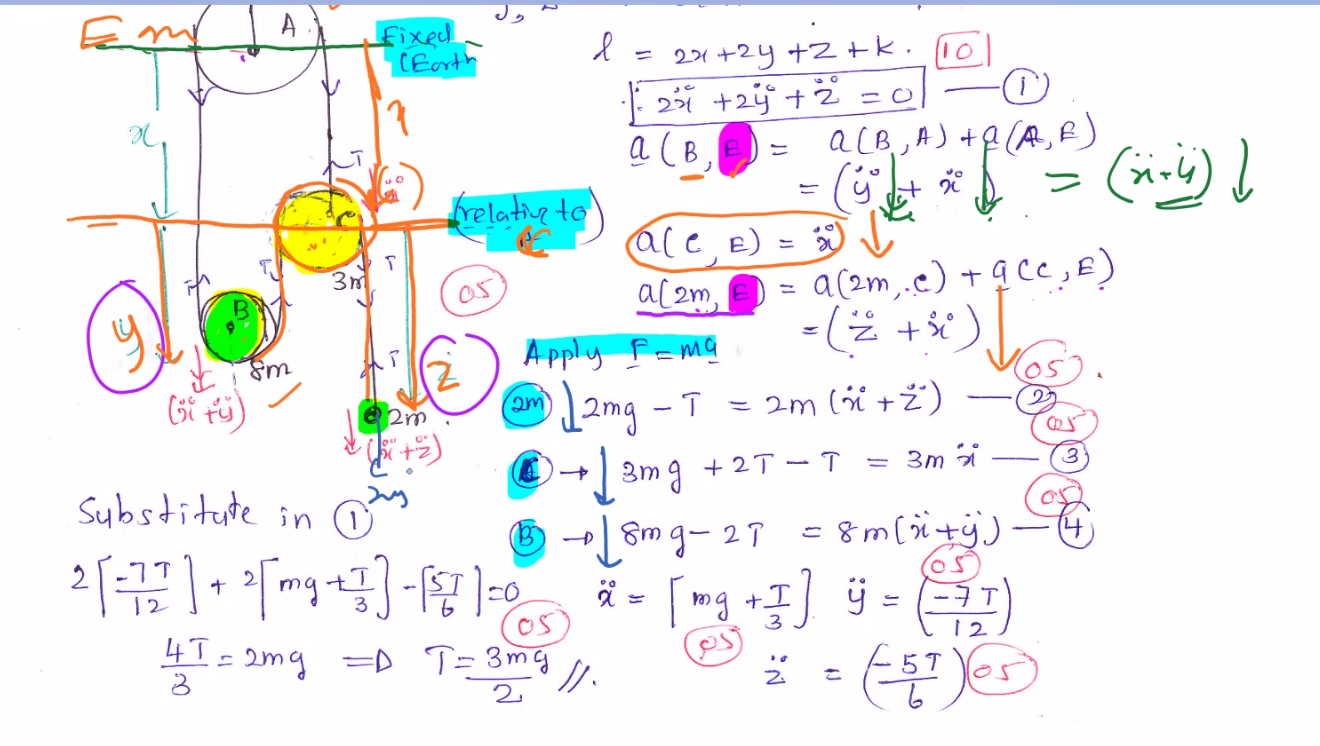 E m
A
Fixed
(Earth
x
x
T
(ẍ)
C
(relative to
3m
T
T
T
B
y
8m
(ẍ + ÿ)
T
z
2m
(ẍ + z̈)
2mg
05
l = 2x + 2y + z + k. 10
∴ 2ẍ + 2ÿ + z̈ = 0 — ①
a (B, E) = a(B, A) + a(A, E)
= (ÿ + ẍ) = (ẍ + ÿ) ↓
a(C, E) = ẍ ↓
a(2m, E) = a(2m, C) + a(C, E)
= (z̈ + ẍ)
Apply F = ma
05
2m ↓ 2mg – T = 2m (ẍ + z̈) — ②
05
C → ↓ 3mg + 2T – T = 3m ẍ — ③
05
B → ↓ 8mg – 2T = 8m(ẍ + ÿ) — ④
05
ẍ = [mg + T/3] ÿ = (-7T/12)
05
z̈ = (-5T/6) 05
Substitute in ①
2[-7T/12] + 2[mg + T/3] - [5T/6] = 0
05
4T/3 = 2mg ⇒ T = 3mg/2 //.